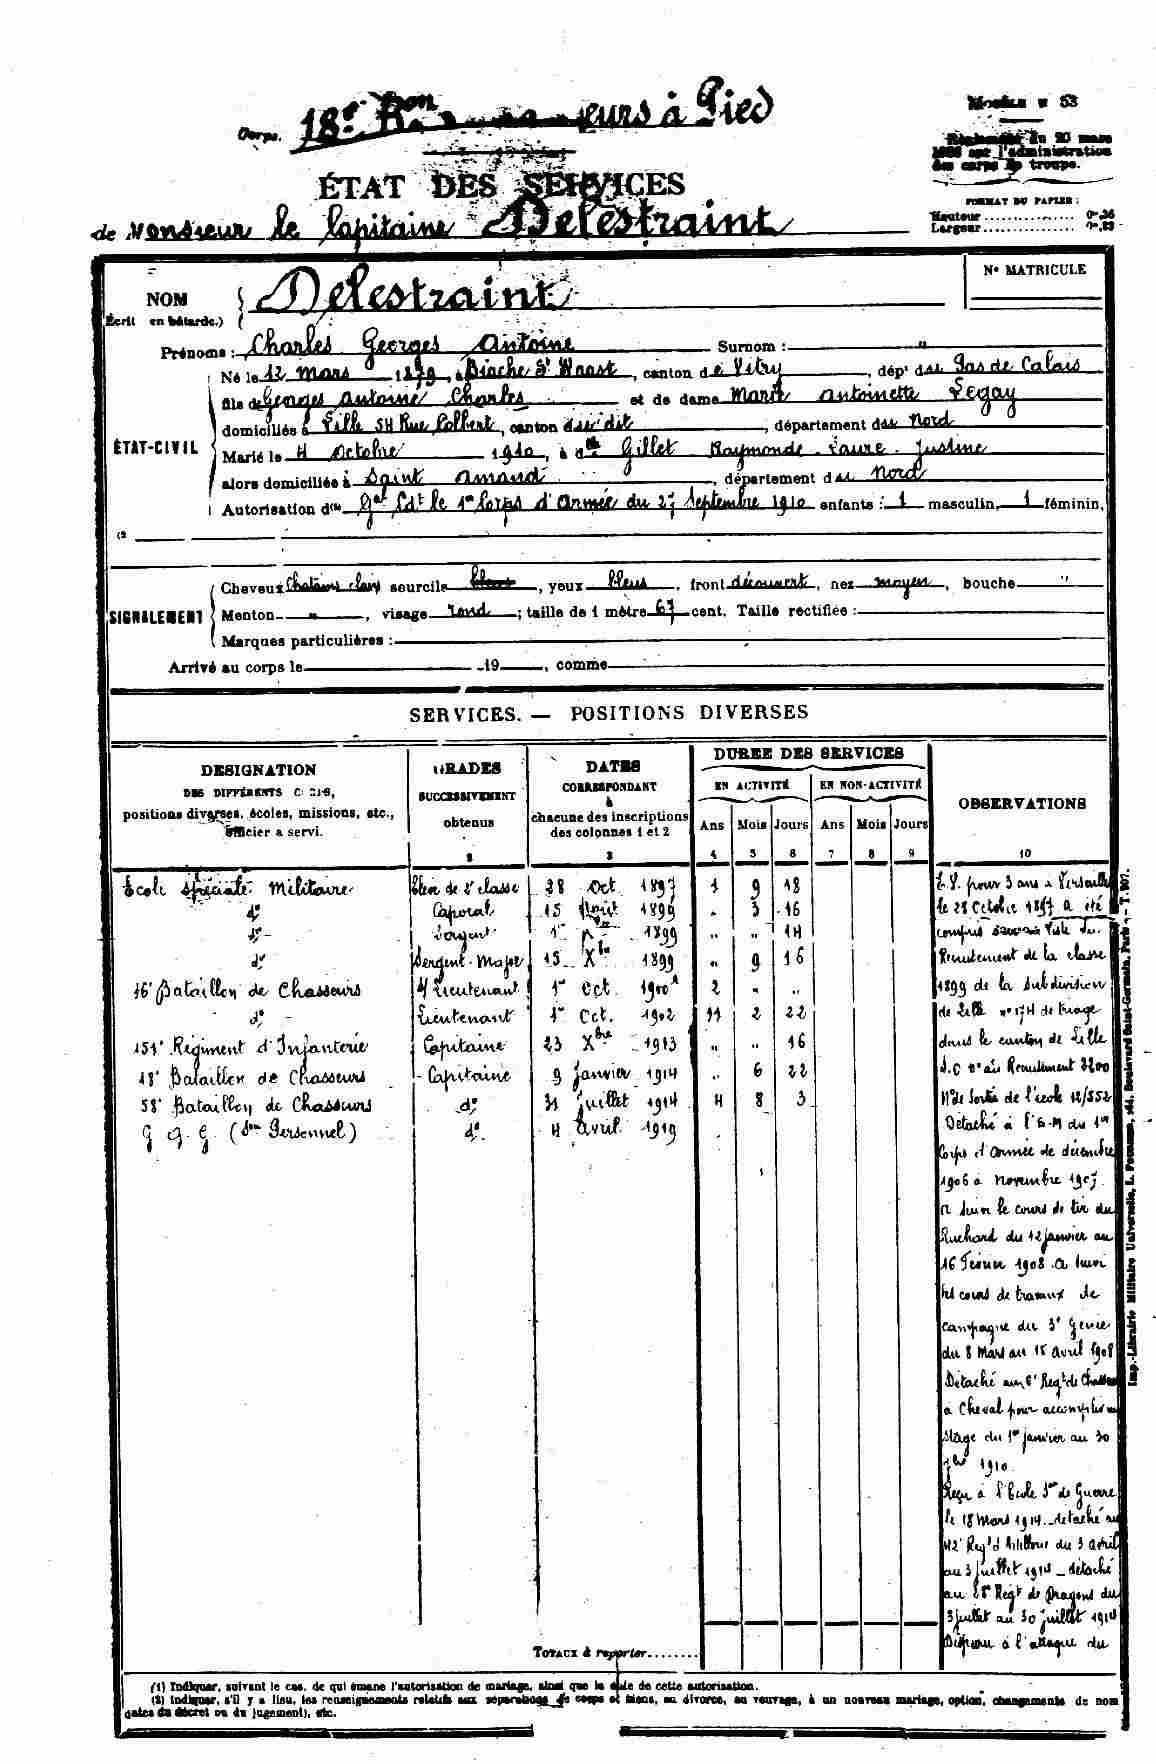 Corps. 18e Bon eurs à Pied
Modèle n° 53
Règlement du 20 mars
sur l'administration
des corps de troupe.
FORMAT DU PAPIER :
Hauteur ............... 0m,36
Largeur ............... 0m,23
ÉTAT DES SERVICES
de Monsieur le Capitaine Delestraint
N° MATRICULE
NOM Delestraint
(Écrit en bâtarde.)
Prénoms : Charles Georges Antoine Surnom : "
Né le 12 Mars 1879, à Biache St Waast, canton de Vitry, dépt du Pas de Calais
fils de Georges Antoine Charles et de dame Marie Antoinette Segay
domiciliés à Lille 54 Rue Colbert, canton du dit, département du Nord
ÉTAT-CIVIL
Marié le 4 Octobre 1910, à dlle Gillet Raymonde Laure Justine
alors domiciliée à Saint Amand, département du Nord
Autorisation d(1) Gal Cdt le 1er Corps d'Armée du 27 Septembre 1910 enfants : 1 masculin, 1 féminin,
(2
Cheveux Chatains clairs sourcils, yeux bleus, front découvert, nez moyen, bouche "
SIGNALEMENT Menton ", visage rond ; taille de 1 mètre 67 cent. Taille rectifiée :
Marques particulières :
Arrivé au corps le 19 , comme
SERVICES. — POSITIONS DIVERSES
DÉSIGNATION
DES DIFFÉRENTS CORPS,
positions diverses, écoles, missions, etc.,
officier a servi.
GRADES
SUCCESSIVEMENT
obtenus
DATES
CORRESPONDANT
à
chacune des inscriptions
des colonnes 1 et 2
DURÉE DES SERVICES
EN ACTIVITÉ EN NON-ACTIVITÉ
Ans Mois Jours Ans Mois Jours
OBSERVATIONS
2 3 4 5 6 7 8 9 10
École Spéciale Militaire Élève de 2e classe 28 Oct. 1897 1 9 18
do Caporal 15 Août 1899 " 3 16
do Sergent 1er Xbre 1899 " " 14
do Sergent-Major 15 Xbre 1899 " 9 16
16e Bataillon de Chasseurs S/Lieutenant 1er Oct. 1900 2 " "
do Lieutenant 1er Oct. 1902 11 2 22
151e Régiment d'Infanterie Capitaine 23 Xbre 1913 " " 16
18e Bataillon de Chasseurs Capitaine 9 Janvier 1914 " 6 22
58e Bataillon de Chasseurs do 31 Juillet 1914 4 8 3
G Q G (Son Personnel) do 4 Avril 1919
E.V. pour 3 ans à Versailles
le 28 Octobre 1897 a été
compris sur la liste du
Recrutement de la classe
1899 de la subdivision
de Lille n° 174 de tirage
dans le canton de Lille
S.O n° au Recrutement 3200
N° de Sortie de l'école 12/552
Détaché à l'E-M du 1er
Corps d'Armée de décembre
1906 à novembre 1907.
A suivi le cours de tir du
Ruchard du 12 janvier au
16 Février 1908. A suivi
les cours de travaux de
campagne du 3e Génie
du 8 Mars au 15 Avril 1908
Détaché au 6e Regt de Chasseurs
à Cheval pour accomplir un
stage du 1er janvier au 30
1910.
Reçu à l'École Sre de Guerre
le 18 Mars 1914 - détaché au
42e Regt d'Artillerie du 3 avril
au 3 juillet 1914 - détaché
au Regt de Dragons du
3 juillet au 30 juillet 1914
Disparu à l'attaque du
TOTAUX à reporter........
(1) Indiquer, suivant le cas, de qui émane l'autorisation de mariage, ainsi que la date de cette autorisation.
(2) Indiquer, s'il y a lieu, les renseignements relatifs aux séparations de corps et biens, au divorce, au veuvage, à un nouveau mariage, option, changements de nom
dates du décret ou du jugement), etc.
Imp.-Librairie Militaire Universelle, L. Fournier, Boulevard Saint-Germain, Paris — T. 907.